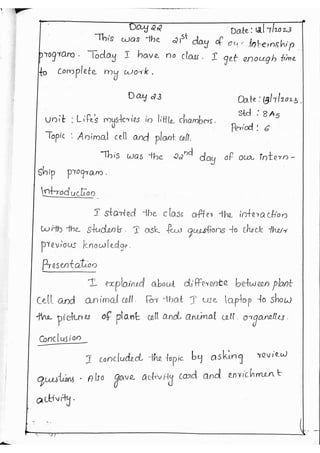 Day 22
Date: 12/7/2023
This was the 21st day of our internship
program. Today I have no class. I get enough time
to complete my work.
Day 23
Date: 13/7/2023.
Std : 8A5
Unit : Life's mysteries in little chambers.
Period : 6
Topic : Animal cell and plant cell.
This was the 22nd day of our intern-
ship program.
Introduction
I started the class after the interaction
with the students. I ask few questions to check their
previous knowledge.
Presentation
I explained about difference between plant
cell and animal cell. For that I use laptop to show
the pictures of plant cell and animal cell. organelles.
Conclusion
I concluded the topic by asking review
questions. Also gave activity card and enrichment
activity.